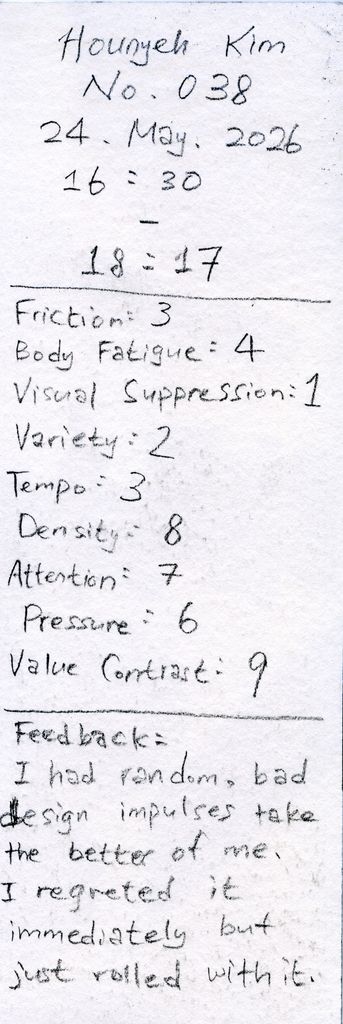 Hounyeh Kim
No. 038
24. May. 2026
16 : 30
–
18 : 17
Friction: 3
Body Fatigue: 4
Visual Suppression: 1
Variety: 2
Tempo: 3
Density: 8
Attention: 7
Pressure: 6
Value Contrast: 9
Feedback:
I had random, bad
design impulses take
the better of me.
I regreted it
immediately but
just rolled with it.